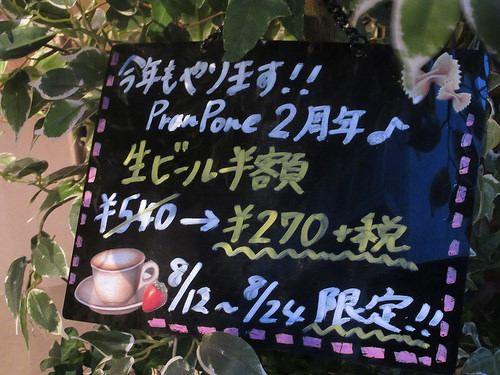 今年もやります!!
PranPone 2周年♪
生ビール半額
¥540→¥270+税
8/12~8/24 限定!!